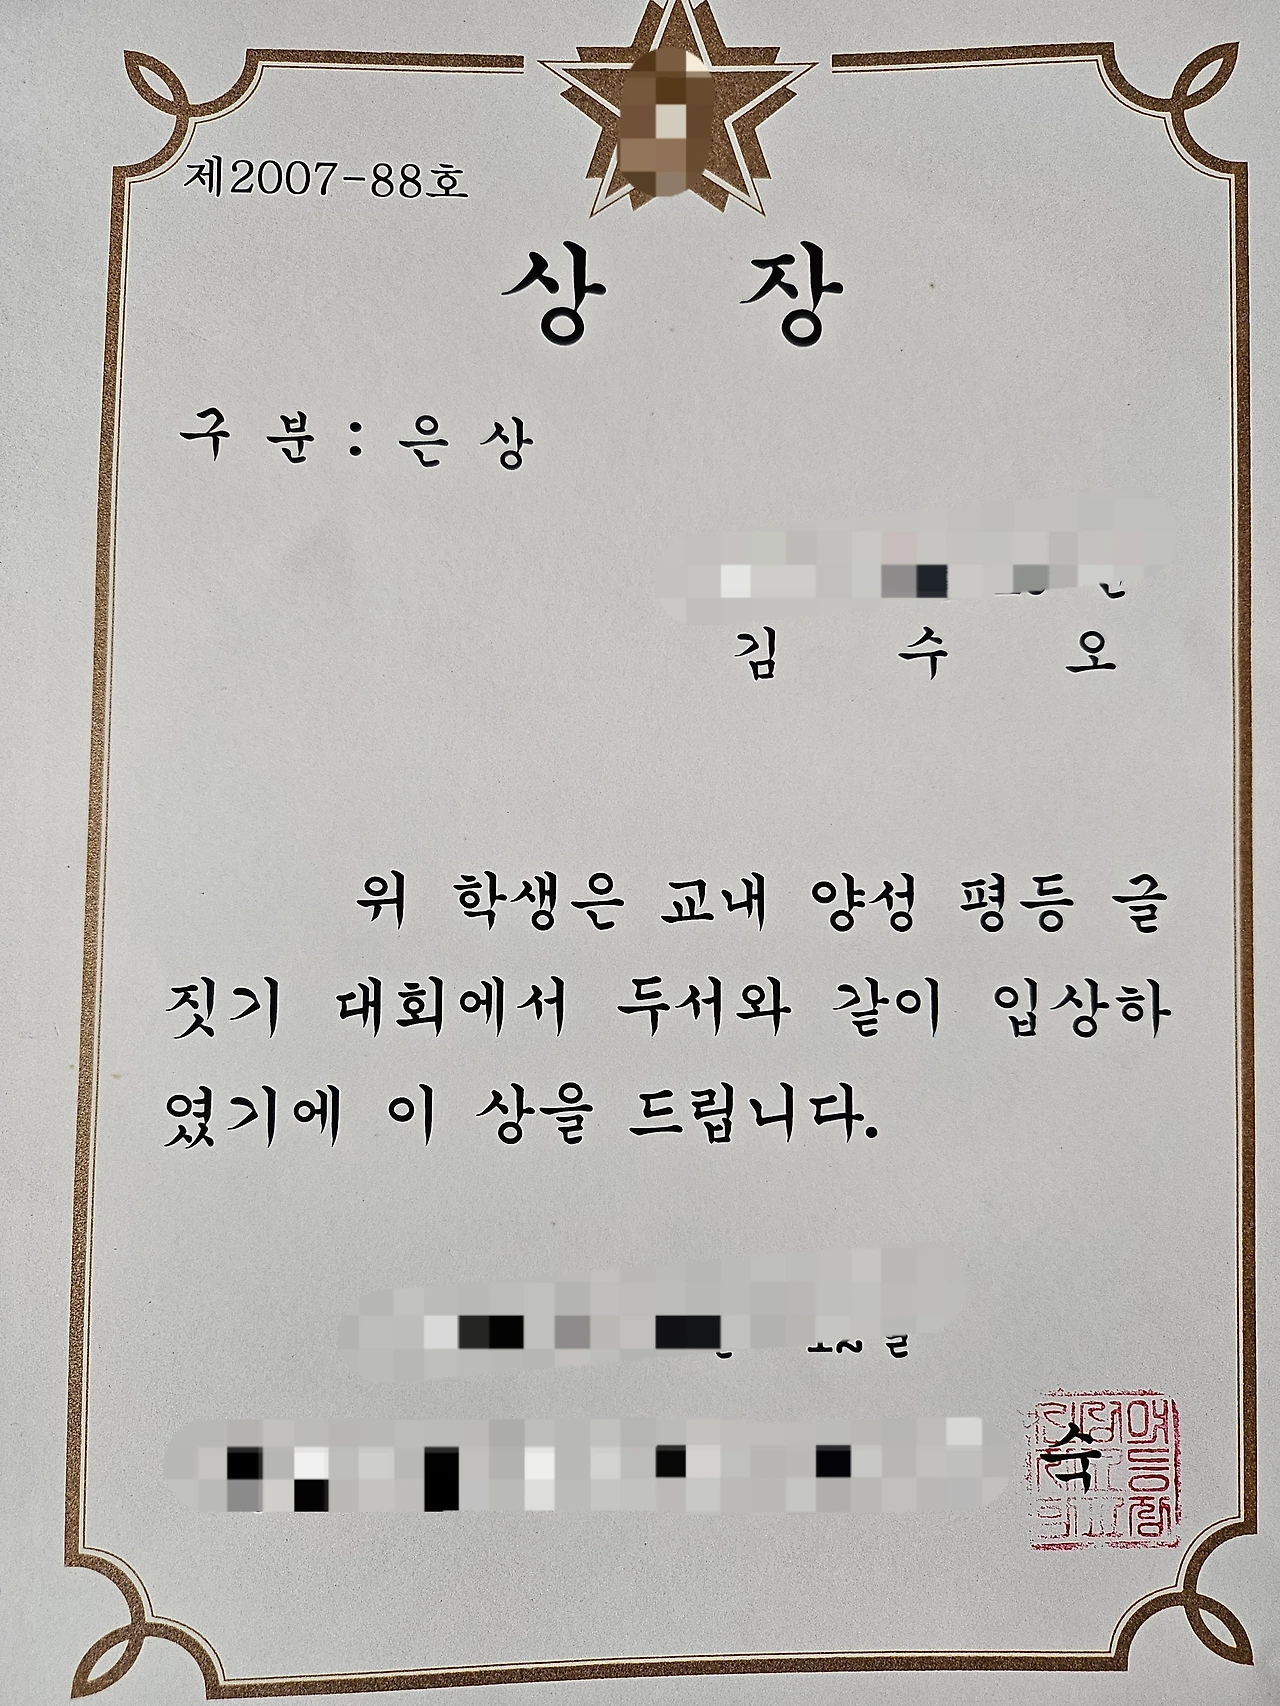 제2007-88호
상 장
구 분 : 은 상
김 수 오
위 학생은 교내 양성 평등 글
짓기 대회에서 두서와 같이 입상하
였기에 이 상을 드립니다.
숙